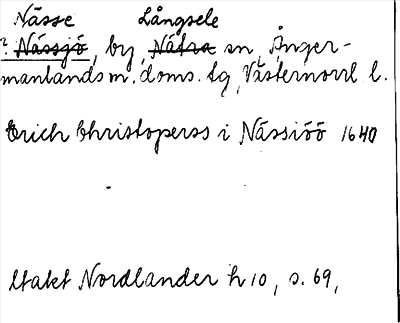 Nässe Långsele
? Nässjö, by, Nätra sn, Ånger-
manlands m. doms. tg, Västernorrl l.
Erich Christoperss i Nässiöö 1640
Utakt Nordlander h 10, s. 69,